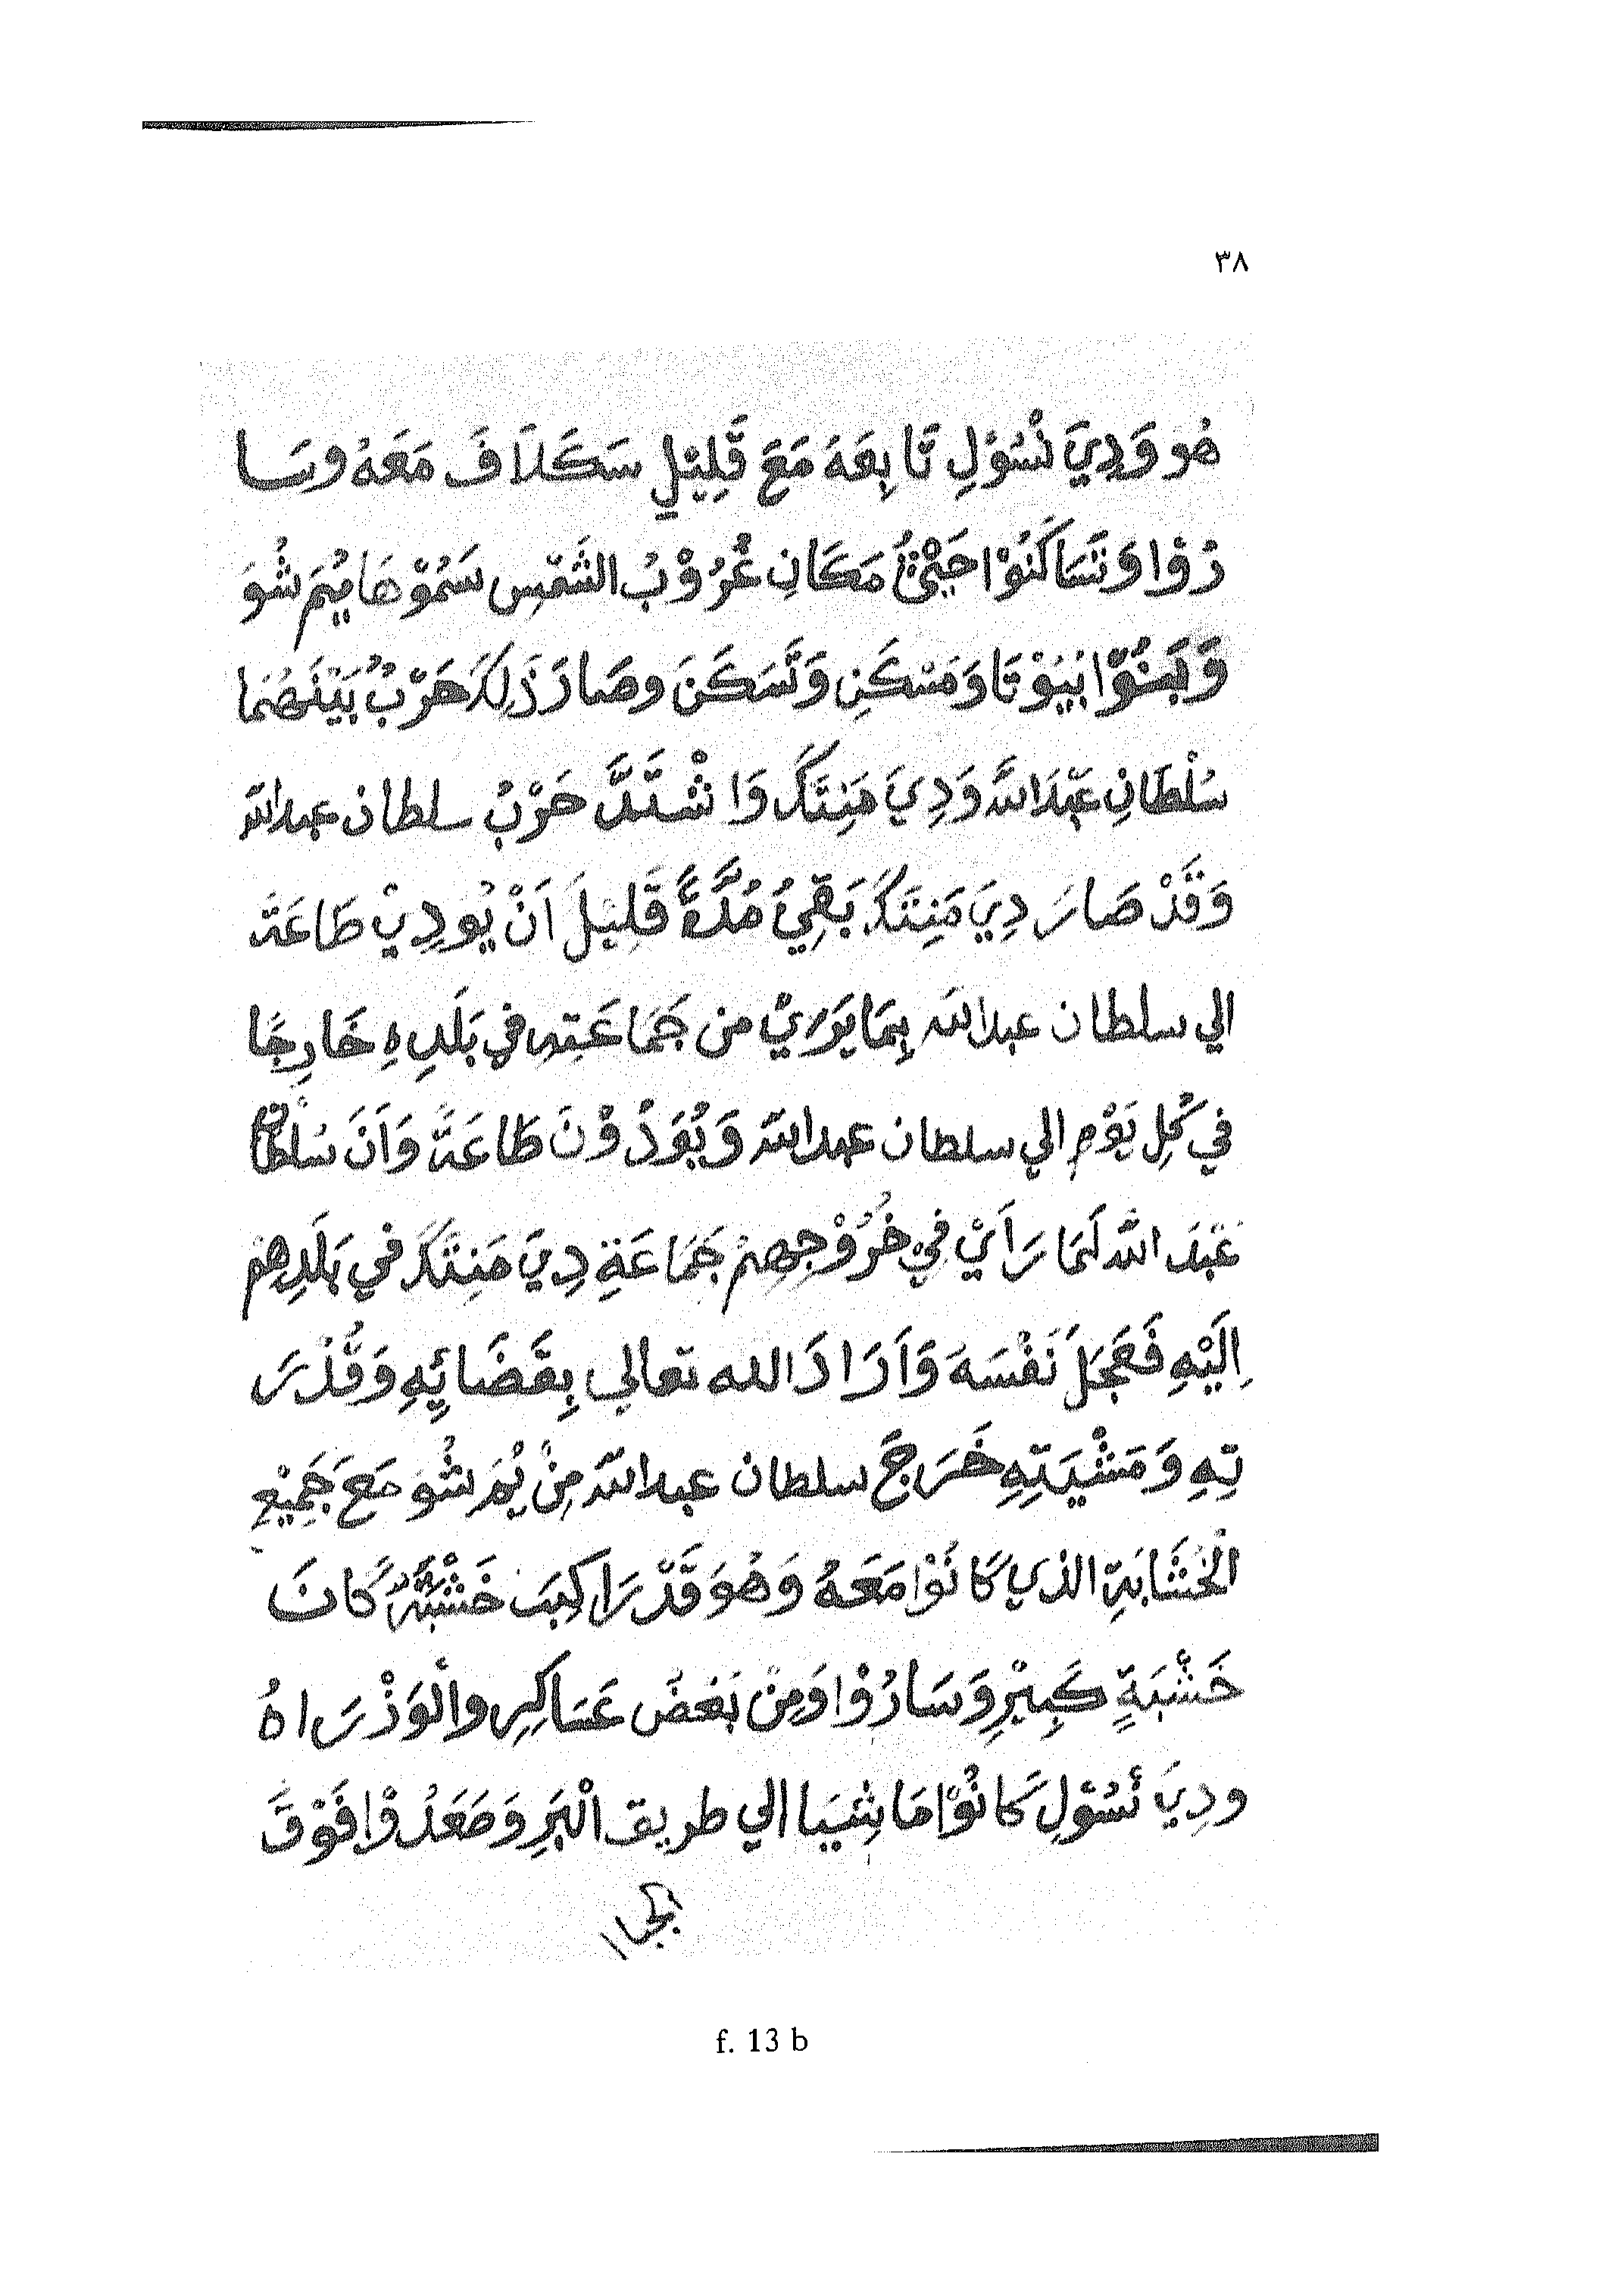 ٣٨
هُوَ وَدِيَ نْسُوْلِ تَابِعَهَ مَعَ قَلِيْلٍ سَكَلَافَ مَعَهُ وسَا
رُوْا وَتَسَاكَنُوْا حَتَّىْ مَكَانِ غُرُوْبُ الشَّمْسِ سَمُوْهَا يُمَ شُوَ
وَبَنُوْا بُيُوْتَا وَمَسْكَنِ وَتَسَكَنَ وصَارَ ذَلِكَ حَرْبُ بَيْنَهُمَا
سُلْطَانِ عَبْدَاللَّه وَدِيَ مَنِتَكَ وَاشْتَدَّ حَرْبُ سلطان عبدالله
وَقَدْ صَارَ دِيَ مَنِتَكَ بَقِيُ مُدَّةً قَلِيْلَ اَنْ يُودِيْ طَاعَةً
الي سلطان عبدالله بِمَا يَرَيْ من جَمَاعَتِهِ فِي بَلَدِهِ خَارِجًا
في كُلِ يَوْمِ الي سلطان عبدالله وَيُوَدُوْنَ طَاعَةً وَاَنَ سُلطَان
عَبْدَ اللَّه لَمَا رَاَيْ فِيْ خُرُوْجِهِمْ جَمَاعَةِ دِيَ مَنِتَكَ في بَلَدِهِمْ
اِلَيْهِ فَعَجَلَ نَفْسَهَ وَاَرَادَ الله تعالي بِقَضَائِهِ وَقُدْرَ
تِهِ وَمَشْيَتِهِ خَرَجَ سلطان عبدالله مِنْ يُمَ شُوَ مَعَ جَمِيْعِ
الْخَشَابَةِ الذي كَانَوْا مَعَهُ وَهُوَ قَدْ رَاكِبَ خَشْبَةٌ كَانَ
خَشْبَةٍ كَبِيْرِ وَسَارُوْا وَمِنْ بَعْضُ عَسَاكِرِ والْوَذْرَاهُ
ودِيَ نْسُوْلِ كَانُوْا مَاشِيَا الي طريق الْبَرِ وَصَعَدُوْا فَوْقَ
الجبال
f. 13 b